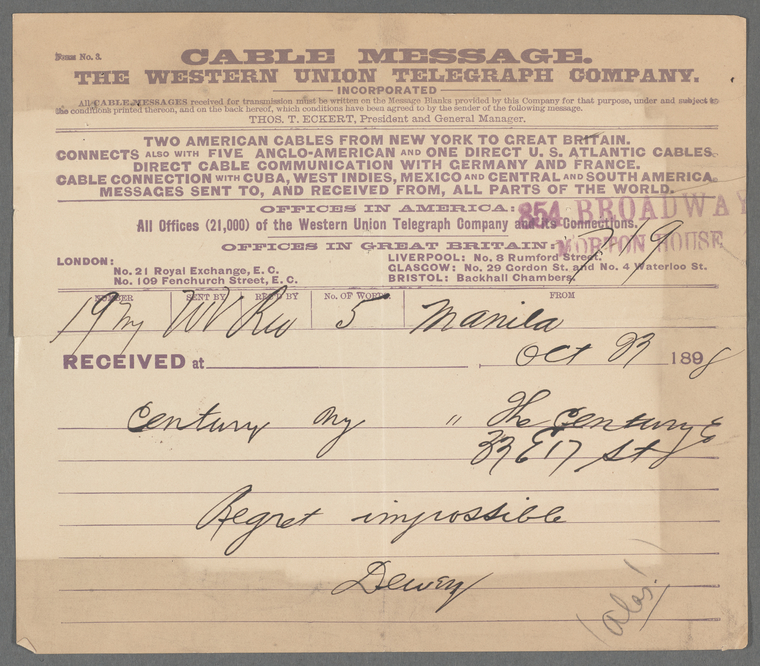 Form No. 3.
CABLE MESSAGE.
THE WESTERN UNION TELEGRAPH COMPANY.
INCORPORATED
All CABLE MESSAGES received for transmission must be written on the Message Blanks provided by this Company for that purpose, under and subject to
the conditions printed thereon, and on the back hereof, which conditions have been agreed to by the sender of the following message.
THOS. T. ECKERT, President and General Manager.
TWO AMERICAN CABLES FROM NEW YORK TO GREAT BRITAIN.
CONNECTS ALSO WITH FIVE ANGLO-AMERICAN AND ONE DIRECT U. S. ATLANTIC CABLES.
DIRECT CABLE COMMUNICATION WITH GERMANY AND FRANCE.
CABLE CONNECTION WITH CUBA, WEST INDIES, MEXICO AND CENTRAL AND SOUTH AMERICA.
MESSAGES SENT TO, AND RECEIVED FROM, ALL PARTS OF THE WORLD.
OFFICES IN AMERICA:
854 BROADWAY
All Offices (21,000) of the Western Union Telegraph Company and its Connections.
719
OFFICES IN GREAT BRITAIN:
MORTON HOUSE
LONDON:
No. 21 Royal Exchange, E. C.
No. 109 Fenchurch Street, E. C.
LIVERPOOL: No. 8 Rumford Street.
GLASGOW: No. 29 Gordon St. and No. 4 Waterloo St.
BRISTOL: Backhall Chambers.
NUMBER SENT BY REC'D BY No. OF WORDS FROM
5 Manila
RECEIVED at Oct 23 1898
Century Ny " The Century Co
33 E 17 St
Regret impossible
Dewey
(alas!)